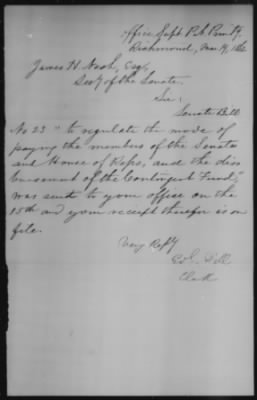 Office Supt Pub Printg.
Richmond, Mar 19, 186
James H. Nash, Esq,
Secy of the Senate.
Sir;
Senate Bill
No 23 "to regulate the mode of
paying the members of the Senate
and House of Reps, and the dis
bursement of the Contingent Fund,"
was sent to your office on the
15th and your receipt therefor is on
file.
Very Repfy
Clerk